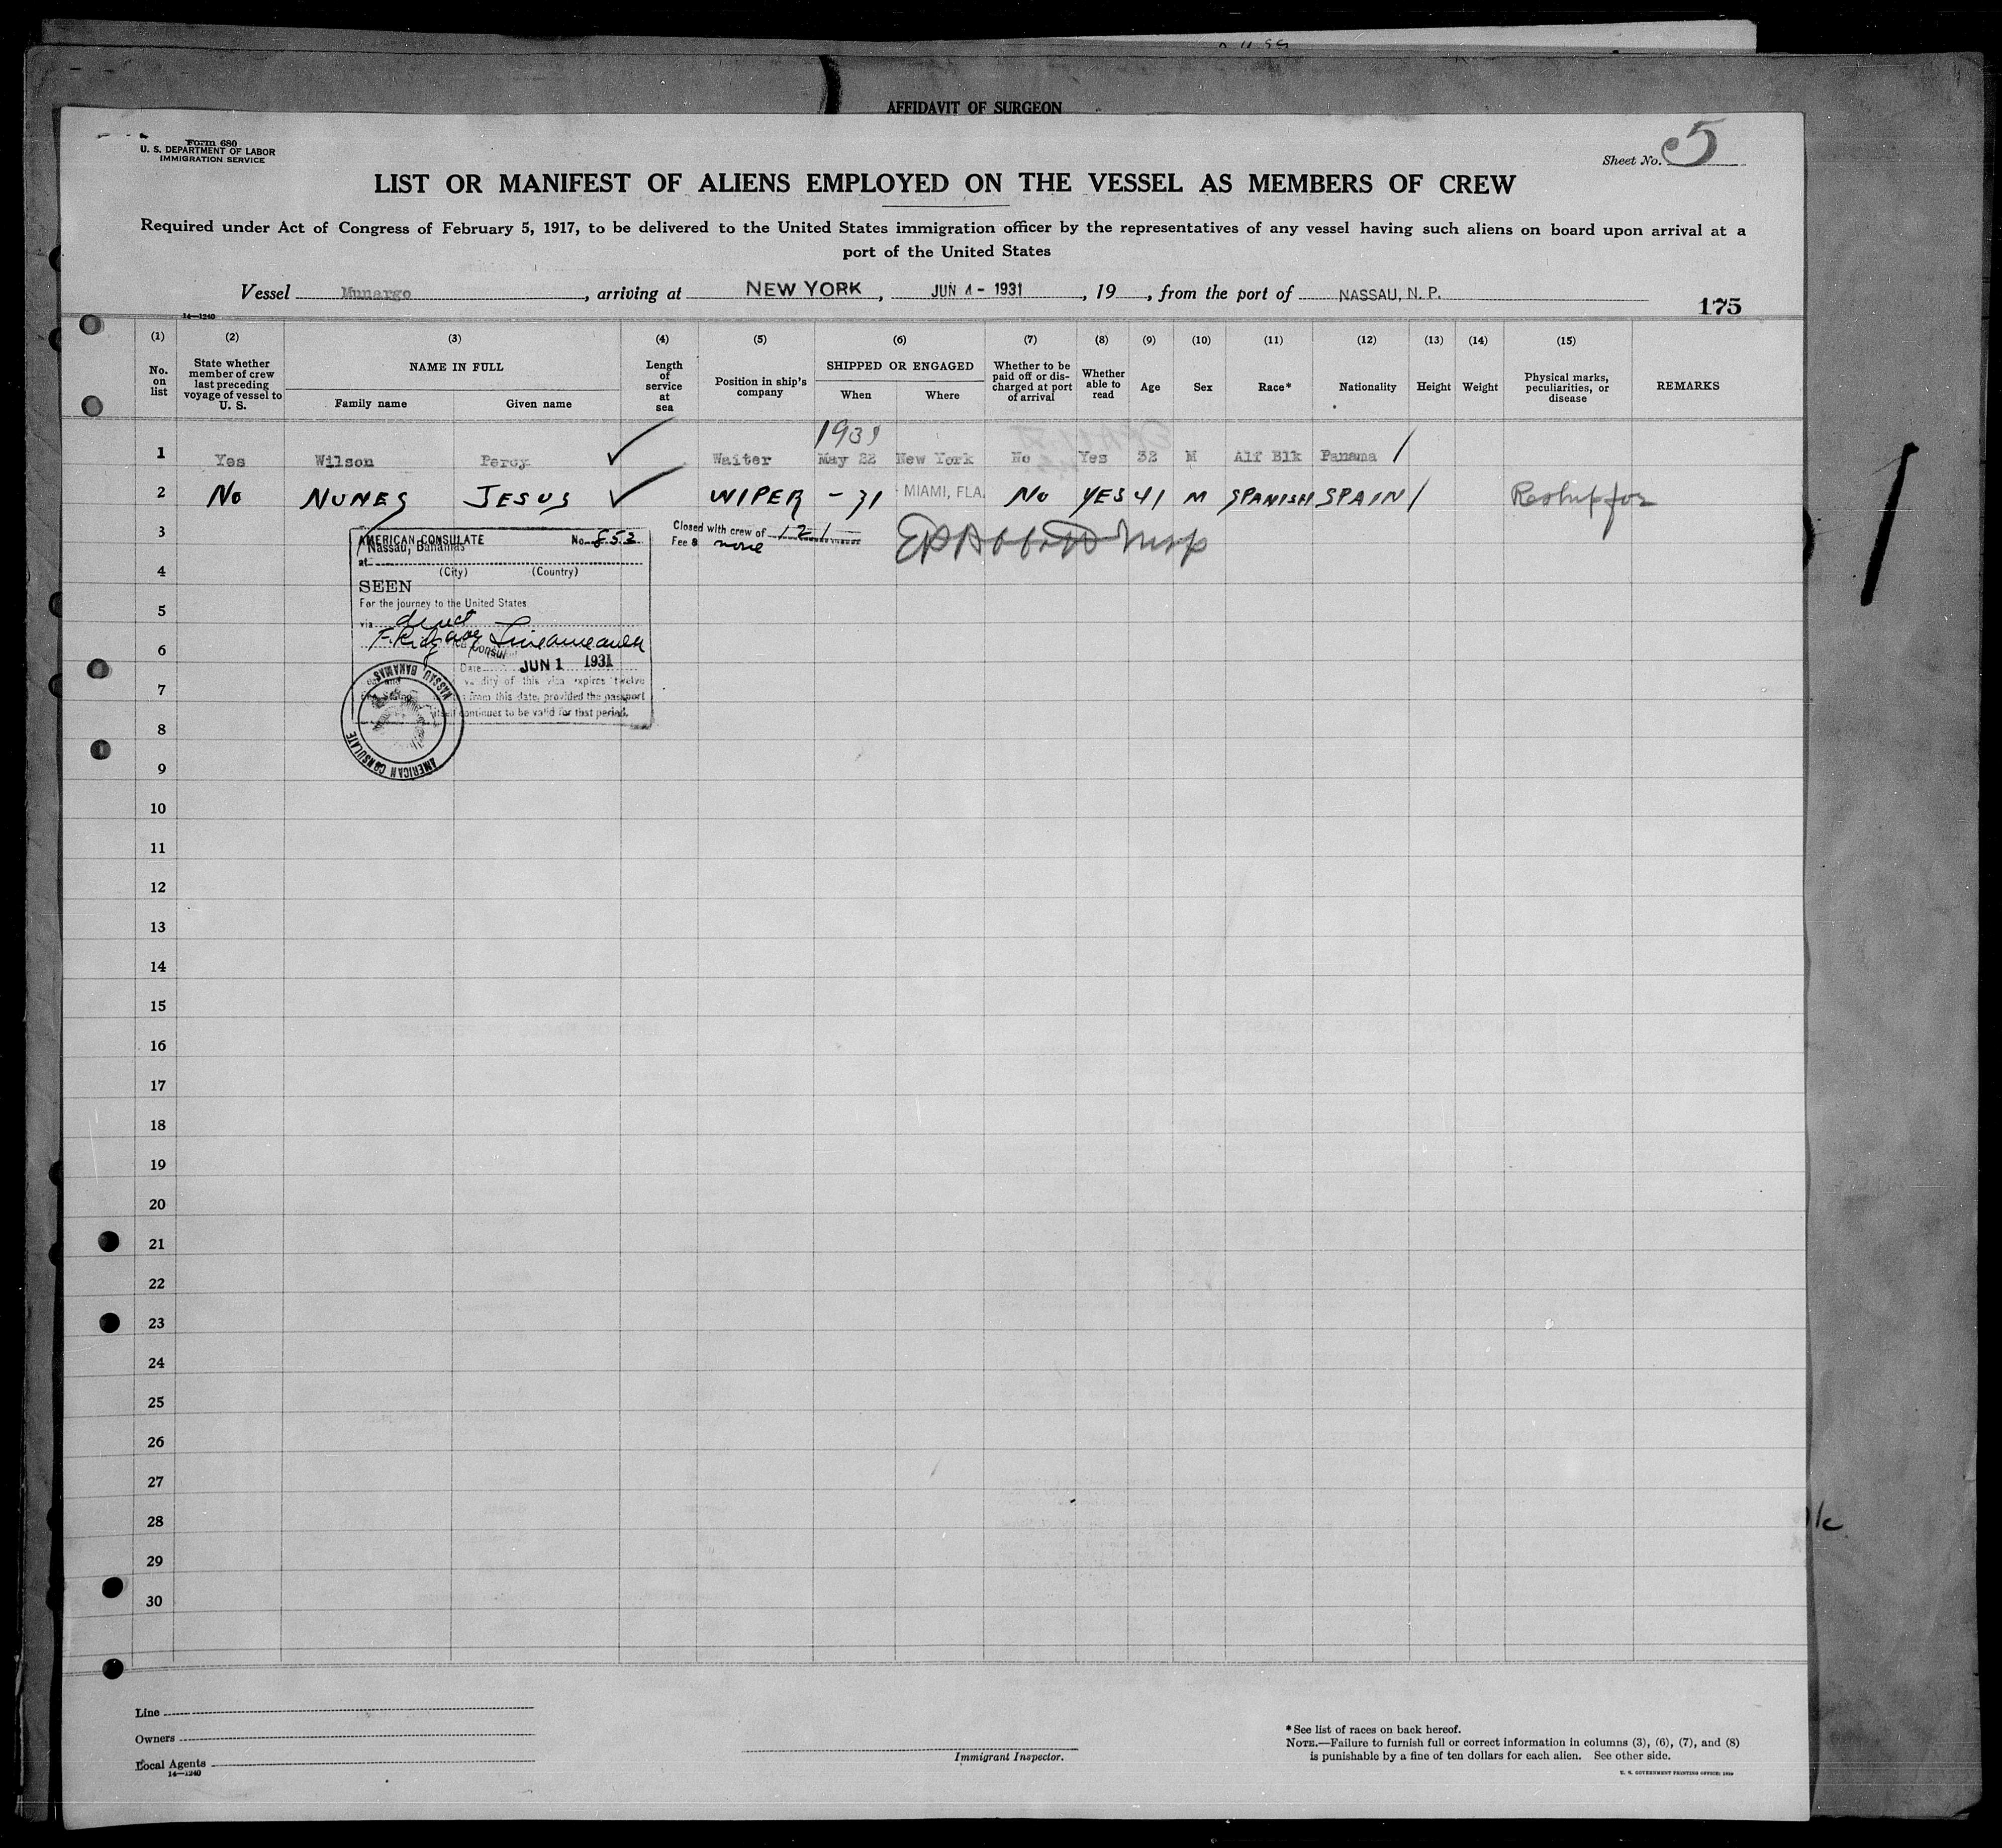 AFFIDAVIT OF SURGEON
Form 680
U. S. DEPARTMENT OF LABOR
IMMIGRATION SERVICE
Sheet No. 5
LIST OR MANIFEST OF ALIENS EMPLOYED ON THE VESSEL AS MEMBERS OF CREW
Required under Act of Congress of February 5, 1917, to be delivered to the United States immigration officer by the representatives of any vessel having such aliens on board upon arrival at a
port of the United States
Vessel Munargo, arriving at NEW YORK, JUN 4 - 1931, 19, from the port of NASSAU, N. P.
175
14—1240
(1) (2) (3) (4) (5) (6) (7) (8) (9) (10) (11) (12) (13) (14) (15)
No. on list
State whether member of crew last preceding voyage of vessel to U. S.
NAME IN FULL
Family name Given name
Length of service at sea
Position in ship's company
SHIPPED OR ENGAGED
When Where
Whether to be paid off or discharged at port of arrival
Whether able to read
Age Sex Race* Nationality Height Weight
Physical marks, peculiarities, or disease
REMARKS
1931
1 Yes Wilson Percy Waiter May 22 New York No Yes 32 M Alf Blk Panama
2 No NUNES JESUS WIPER - 31 MIAMI, FLA. No YES 41 M SPANISH SPAIN
3
4
5
6
7
8
9
10
11
12
13
14
15
16
17
18
19
20
21
22
23
24
25
26
27
28
29
30
Closed with crew of 121
Fee $ none
AMERICAN CONSULATE No. 853
Nassau, Bahamas
at
(City) (Country)
SEEN
For the journey to the United States
via direct
Consul
Date JUN 1 1931
validity of this visa expires twelve
from this date, provided the passport
continues to be valid for that period.
NASSAU BAHAMAS
AMERICAN CONSULATE
Line
Owners
Local Agents
14—1240
Immigrant Inspector.
*See list of races on back hereof.
NOTE.—Failure to furnish full or correct information in columns (3), (6), (7), and (8)
is punishable by a fine of ten dollars for each alien. See other side.